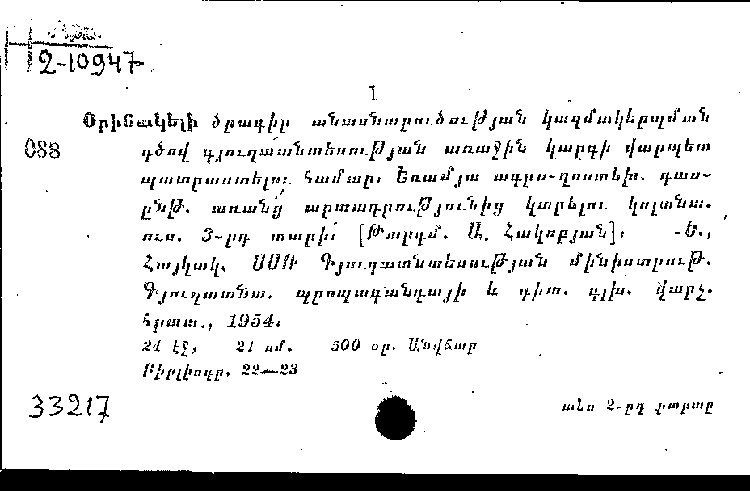 2-10947
1
Օրինակելի ծրագիր անասնաբուծության կազմակերպման
088 գծով գյուղատնտեսության առաջին կարգի վարպետ
պատրաստելու համար. Եռամյա ագրո-զոոտեխ. դաս-
ընթ. առանց արտադրությունից կտրելու կոլտնտ.
ուս. 3-րդ տարի: [Թարգմ. Ա. Հակոբյան]. -Ե.,
Հայկակ. ՍՍՌ Գյուղատնտեսության մինիստրութ.
Գյուղատնտ. պրոպագանդայի և գիտ. գլխ. վարչ.
հրատ., 1954.
21 էջ, 21 սմ. 500 օր. Անվճար
Բիբլիոգր. 22—23
33217 տես 2-րդ քարտը